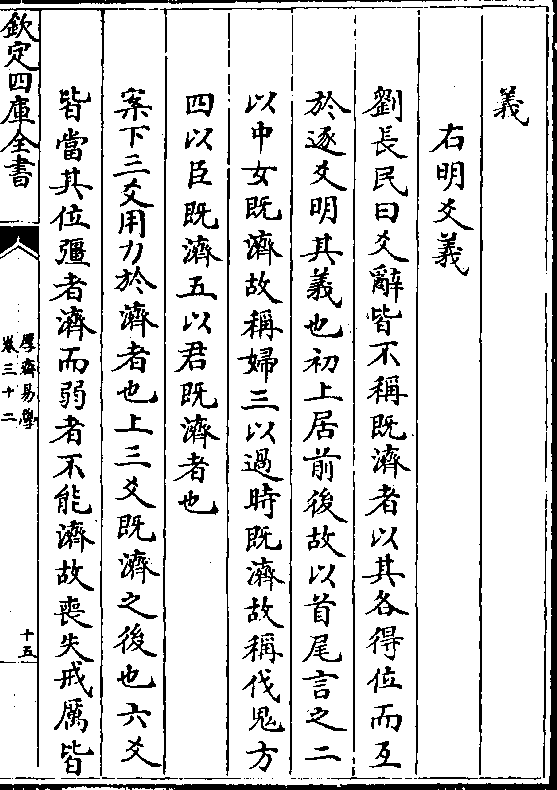 義
右明爻義
劉長民曰爻辭皆不稱既濟者以其各得位而互
於逐爻明其義也初上居前後故以首尾言之二
以中女既濟故稱婦三以過時既濟故稱伐鬼方
四以臣既濟五以君既濟者也
案下三爻用力於濟者也上三爻既濟之後也六爻
皆當其位彊者濟而弱者不能濟故喪失戒厲皆
欽定四庫全書
厚齋易學
卷三十二
十五